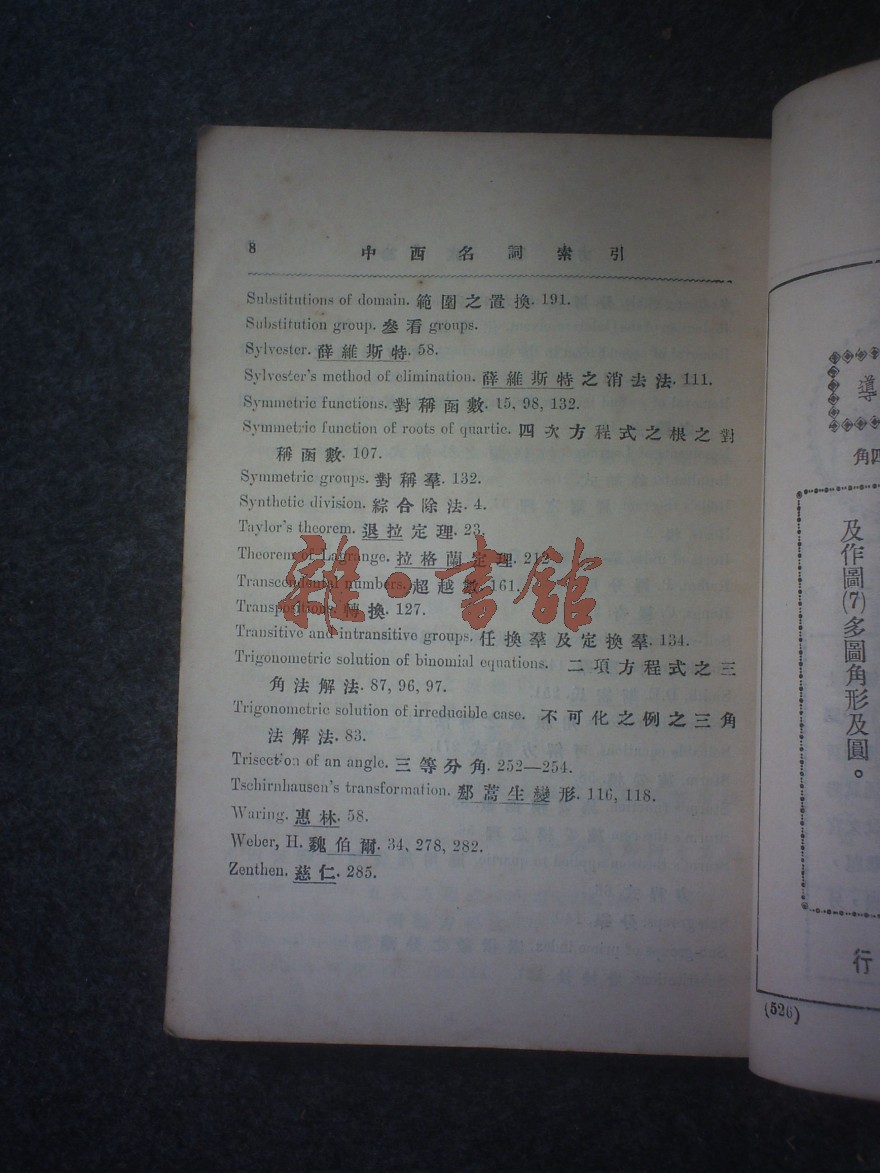 8 中西名詞索引
Substitutions of domain. 範圍之置換. 191.
Substitution group. 參看 groups.
Sylvester. 薛維斯特. 58.
Sylvester's method of elimination. 薛維斯特之消去法. 111.
Symmetric functions. 對稱函數. 15, 98, 132.
Symmetric function of roots of quartic. 四次方程式之根之對
稱函數. 107.
Symmetric groups. 對稱羣. 132.
Synthetic division. 綜合除法. 4.
Taylor's theorem. 退拉定理. 23.
Theorem of Lagrange. 拉格蘭定理. 212.
Transcendental numbers. 超越數. 161.
Transpositions. 轉換. 127.
Transitive and intransitive groups. 任換羣及定換羣. 134.
Trigonometric solution of binomial equations. 二項方程式之三
角法解法. 87, 96, 97.
Trigonometric solution of irreducible case. 不可化之例之三角
法解法. 83.
Trisection of an angle. 三等分角. 252—254.
Tschirnhausen's transformation. 鄀蒿生變形. 116, 118.
Waring. 惠林. 58.
Weber, H. 魏伯爾. 34, 278, 282.
Zenthen. 慈仁. 285.
雜·書館
導
角四
及作圖(7)多圖角形及圓。
行
(526)